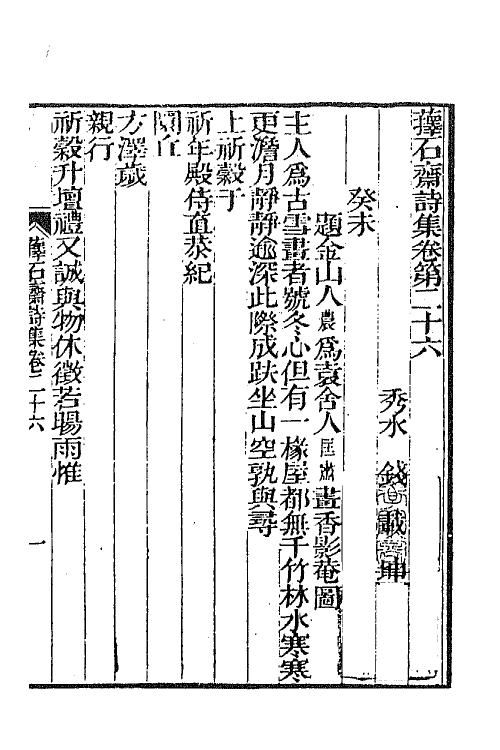 蘀石齋詩集卷第二十六
秀水　錢載　坤一
癸未
題金山人農為袁舍人匡肅畫香影菴圖
主人為古雪畫者號冬心但有一椽屋都無千竹林水寒寒
更澹月靜靜逾深此際成趺坐山空孰與尋
上祈穀于
祈年殿侍直恭紀
圜丘
方澤歲
親行
祈穀升壇禮又誠與物休徵若暘雨惟
蘀石齋詩集卷二十六　一